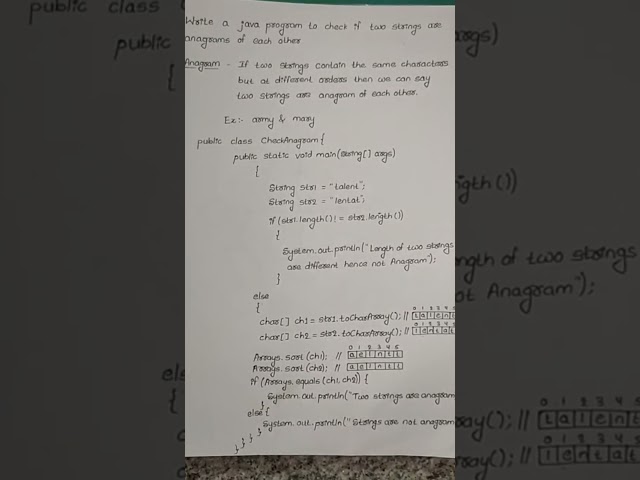 Write a java program to check if two strings are
anagrams of each other
Anagram - If two strings contain the same characters
but at different orders then we can say
two strings are anagram of each other.
Ex:- army & mary
public class CheckAnagram{
public static void main(String[] args)
{
String str1 = "talent";
String str2 = "lentat";
if(str1.length()! = str2.length())
{
System.out.println("Length of two strings
are different hence not Anagram");
}
else
{
0 1 2 3 4 5
char[] ch1 = str1.toCharArray(); // t a l e n t
0 1 2 3 4 5
char[] ch2 = str2.toCharArray(); // l e n t a t
0 1 2 3 4 5
Arrays.sort(ch1); // a e l n t t
Arrays.sort(ch2); // a e l n t t
if (Arrays.equals(ch1,ch2)) {
System.out.println("Two strings are anagram
}
else {
System.out.println("Strings are not anagram
} } } }